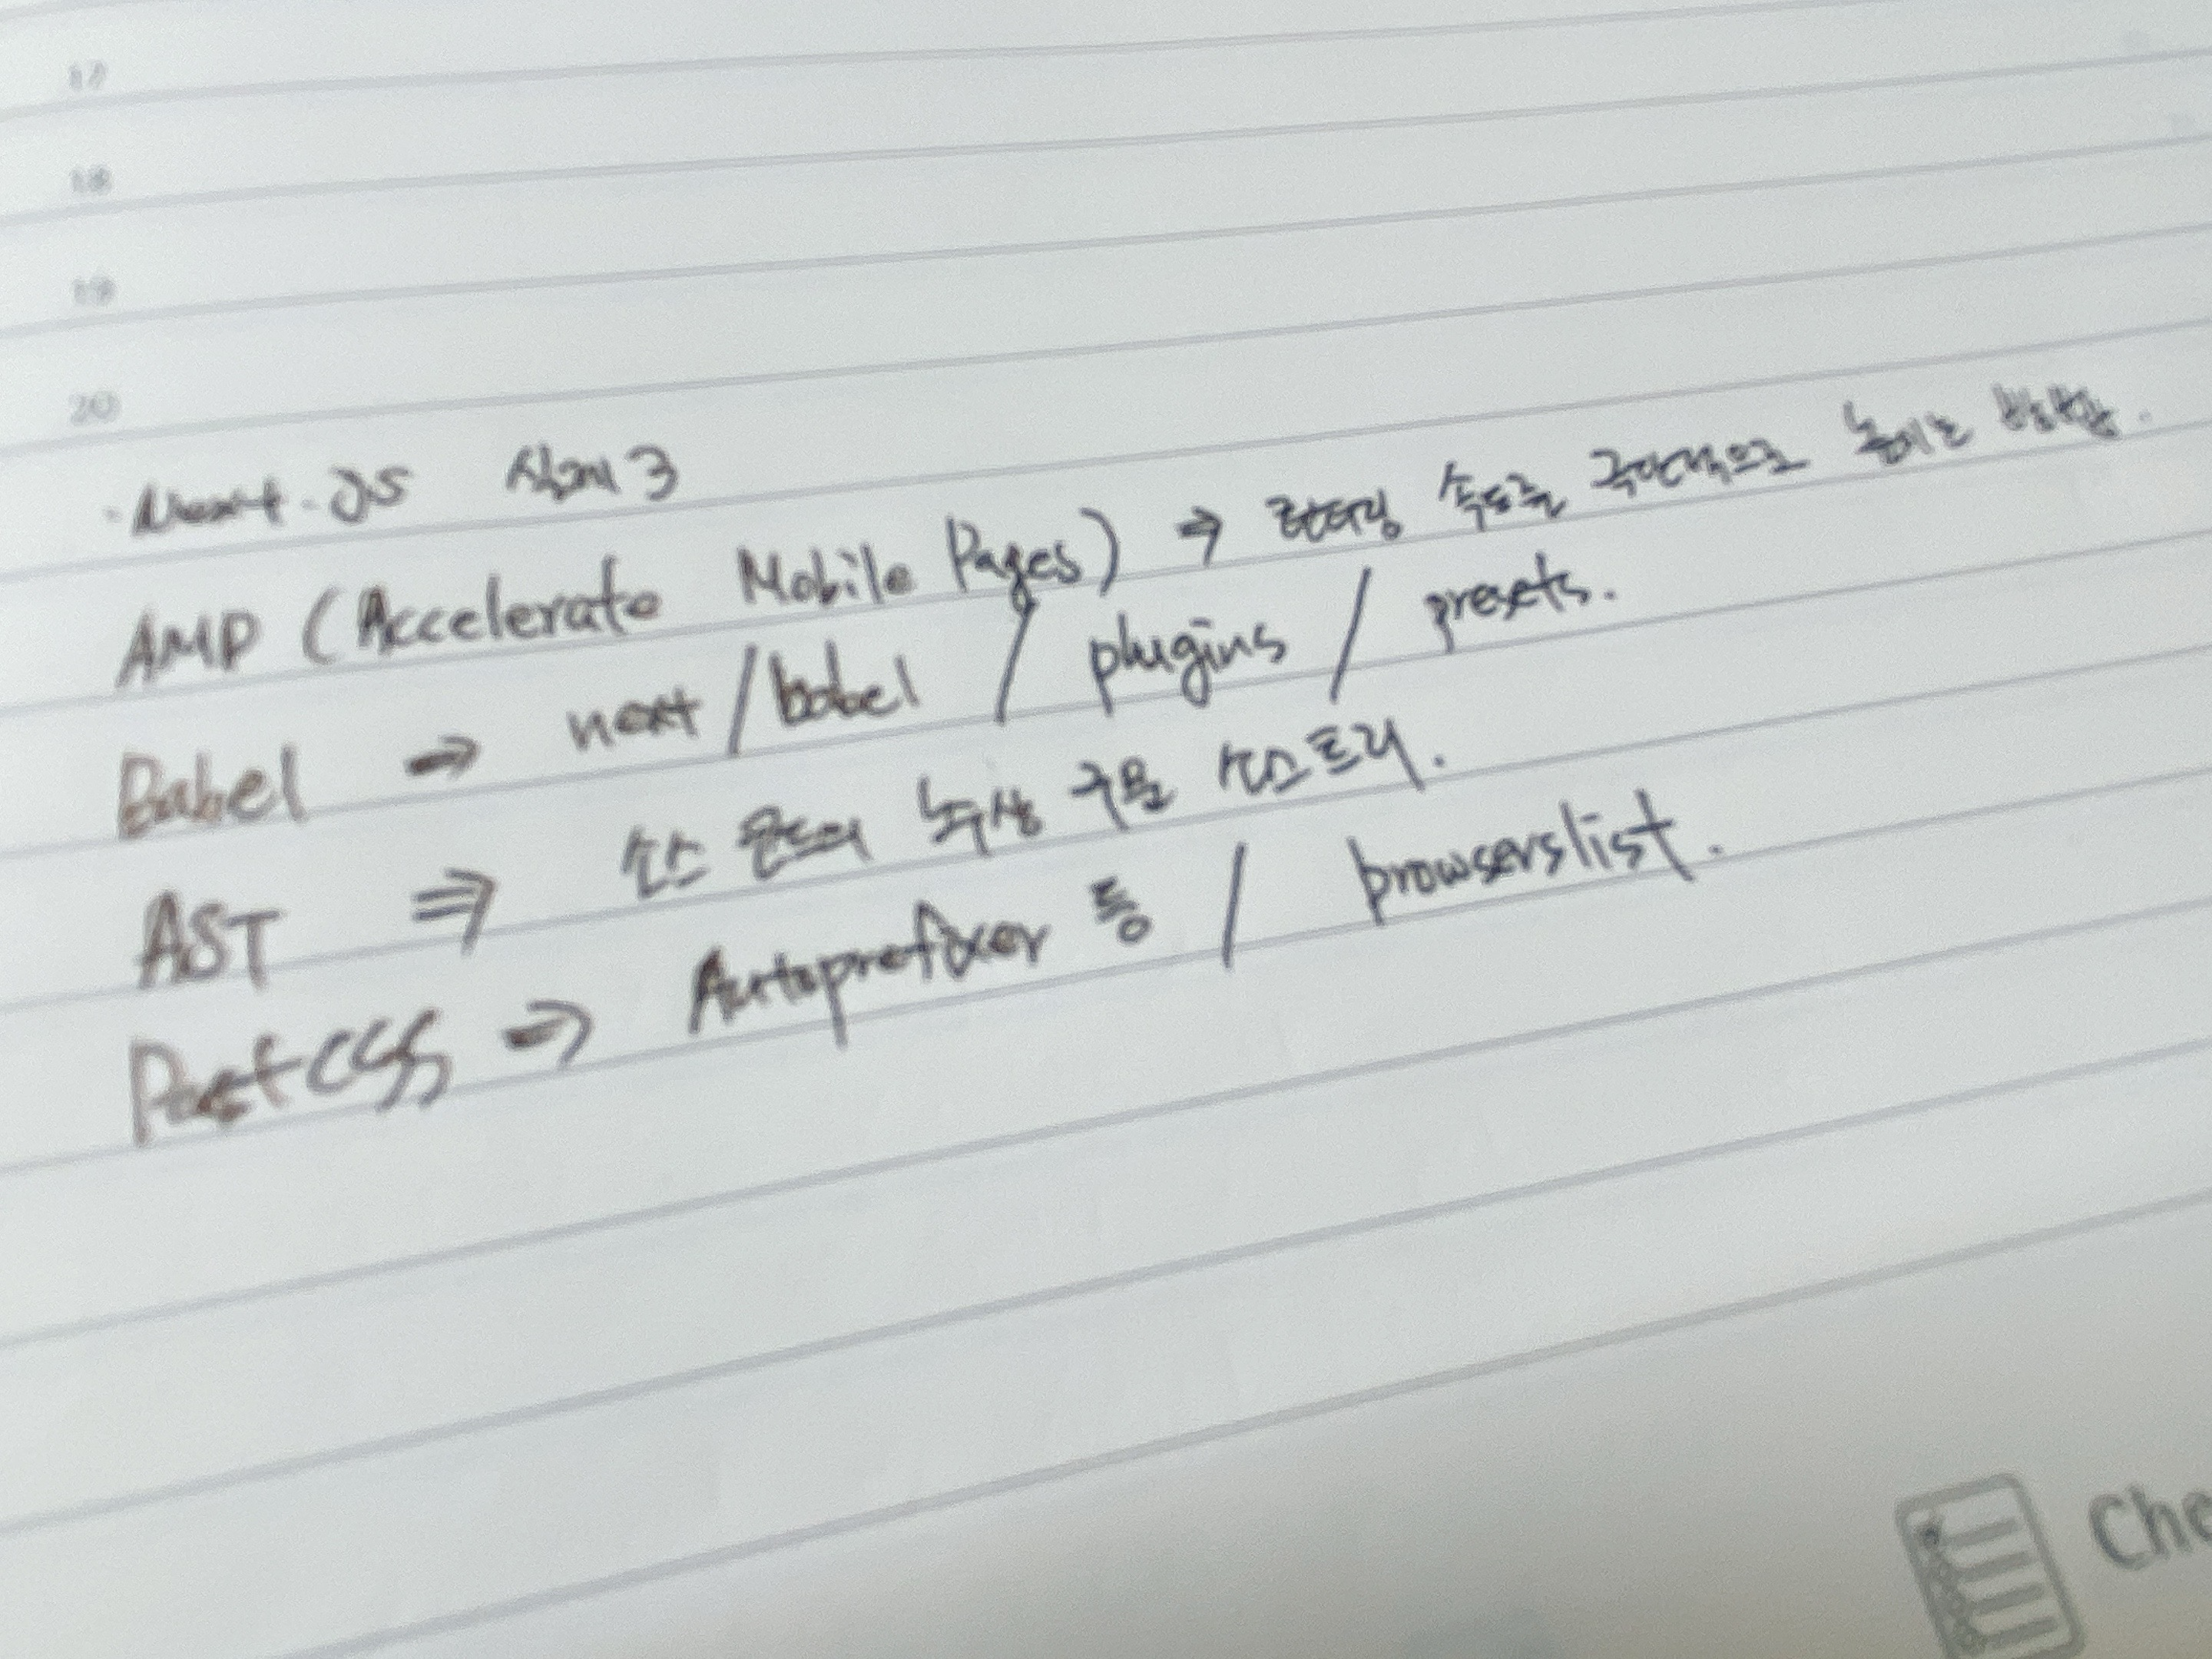 17
18
19
20
· Next.JS 심화 3
AMP (Accelerate Mobile Pages) → 랜더링 속도를 극단적으로 높이는 방법.
Babel → next/babel / plugins / presets.
AST ⇒ 소스 코드의 추상 구문 트리.
PostCSS ⇒ Autoprefixer 등 / browserslist.
Che